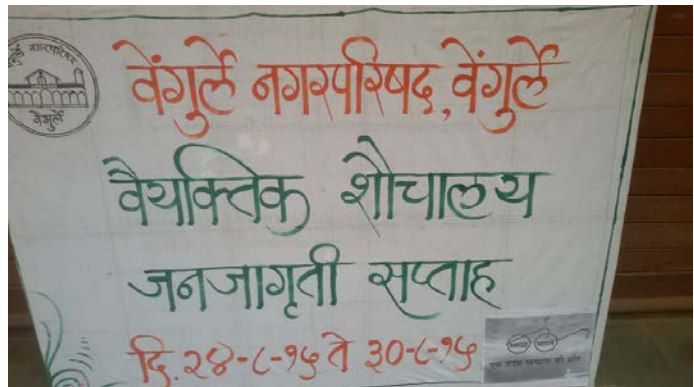 वेंगुर्ले नगरपरिषद, वेंगुर्ले
वेंगुर्ले नगरपरिषद, वेंगुर्ले
वैयक्तिक शौचालय
जनजागृती सप्ताह
दि. २४-८-१५ ते ३०-८-१५
स्वच्छ भारत
एक कदम स्वच्छता की ओर